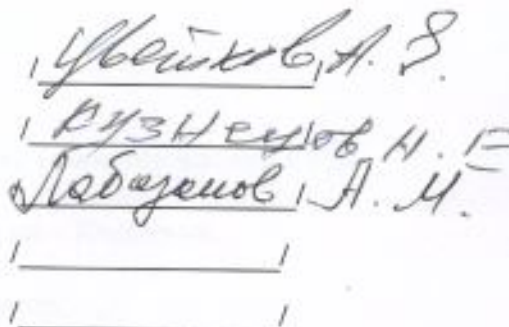 /Цветков/ А. З.
/Кузнецов Н. Е
/Лабазанов/ А. М.
/ /
/ /